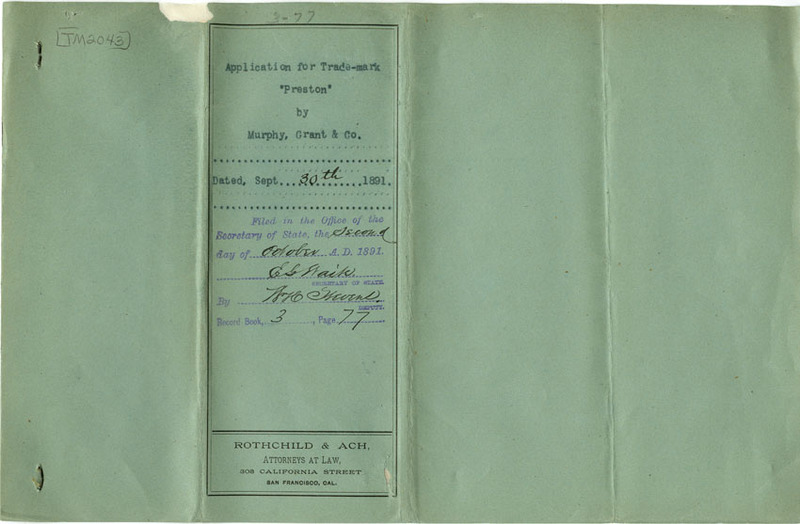 [TM2043]
3-77
Application for Trade-mark
"Preston"
by
Murphy, Grant & Co.
Dated, Sept....30th.......1891.
Filed in the Office of the
Secretary of State, the Second
day of October A. D. 1891.
E G Waite
SECRETARY OF STATE.
By
DEPUTY.
Record Book, 3, Page 77
ROTHCHILD & ACH,
ATTORNEYS AT LAW,
303 CALIFORNIA STREET
SAN FRANCISCO, CAL.